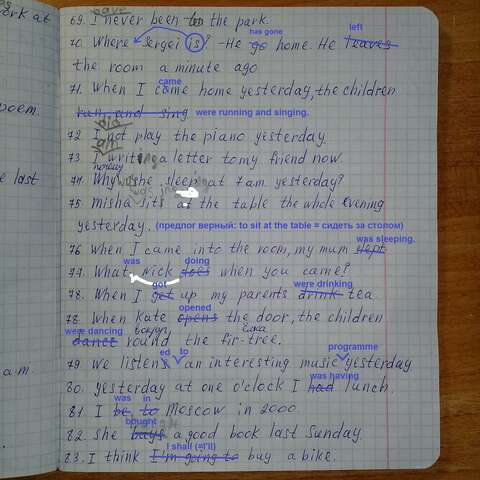 ork at
have
69. I never been in the park.
has gone
left
70. Where Sergei is? -He go home. He leaves
the room a minute ago
came
71. When I come home yesterday, the children
run and sing were running and singing.
poem.
did
72. I not play the piano yesterday.
am
73. I writing a letter to my friend now.
e last
74. Why was she sleep at 7 am yesterday?
75. Misha sits at the table the whole evening
yesterday. (предлог верный: to sit at the table = сидеть за столом)
was sleeping.
76. When I came into the room, my mum slept
was doing
77. What Nick does when you came?
got were drinking
78. When I get up my parents drink tea
opened
78. When Kate opens the door, the children
were dancing вокруг ёлка
dance round the fir-tree.
ed to programme
79. We listens an interesting music yesterday
was having
a m. 80. yesterday at one o'clock I had lunch.
was in
81. I be to Moscow in 2000.
bought
82. She buys a good book last Sunday.
I shall (=I'll)
83. I think I'm going to buy a bike.